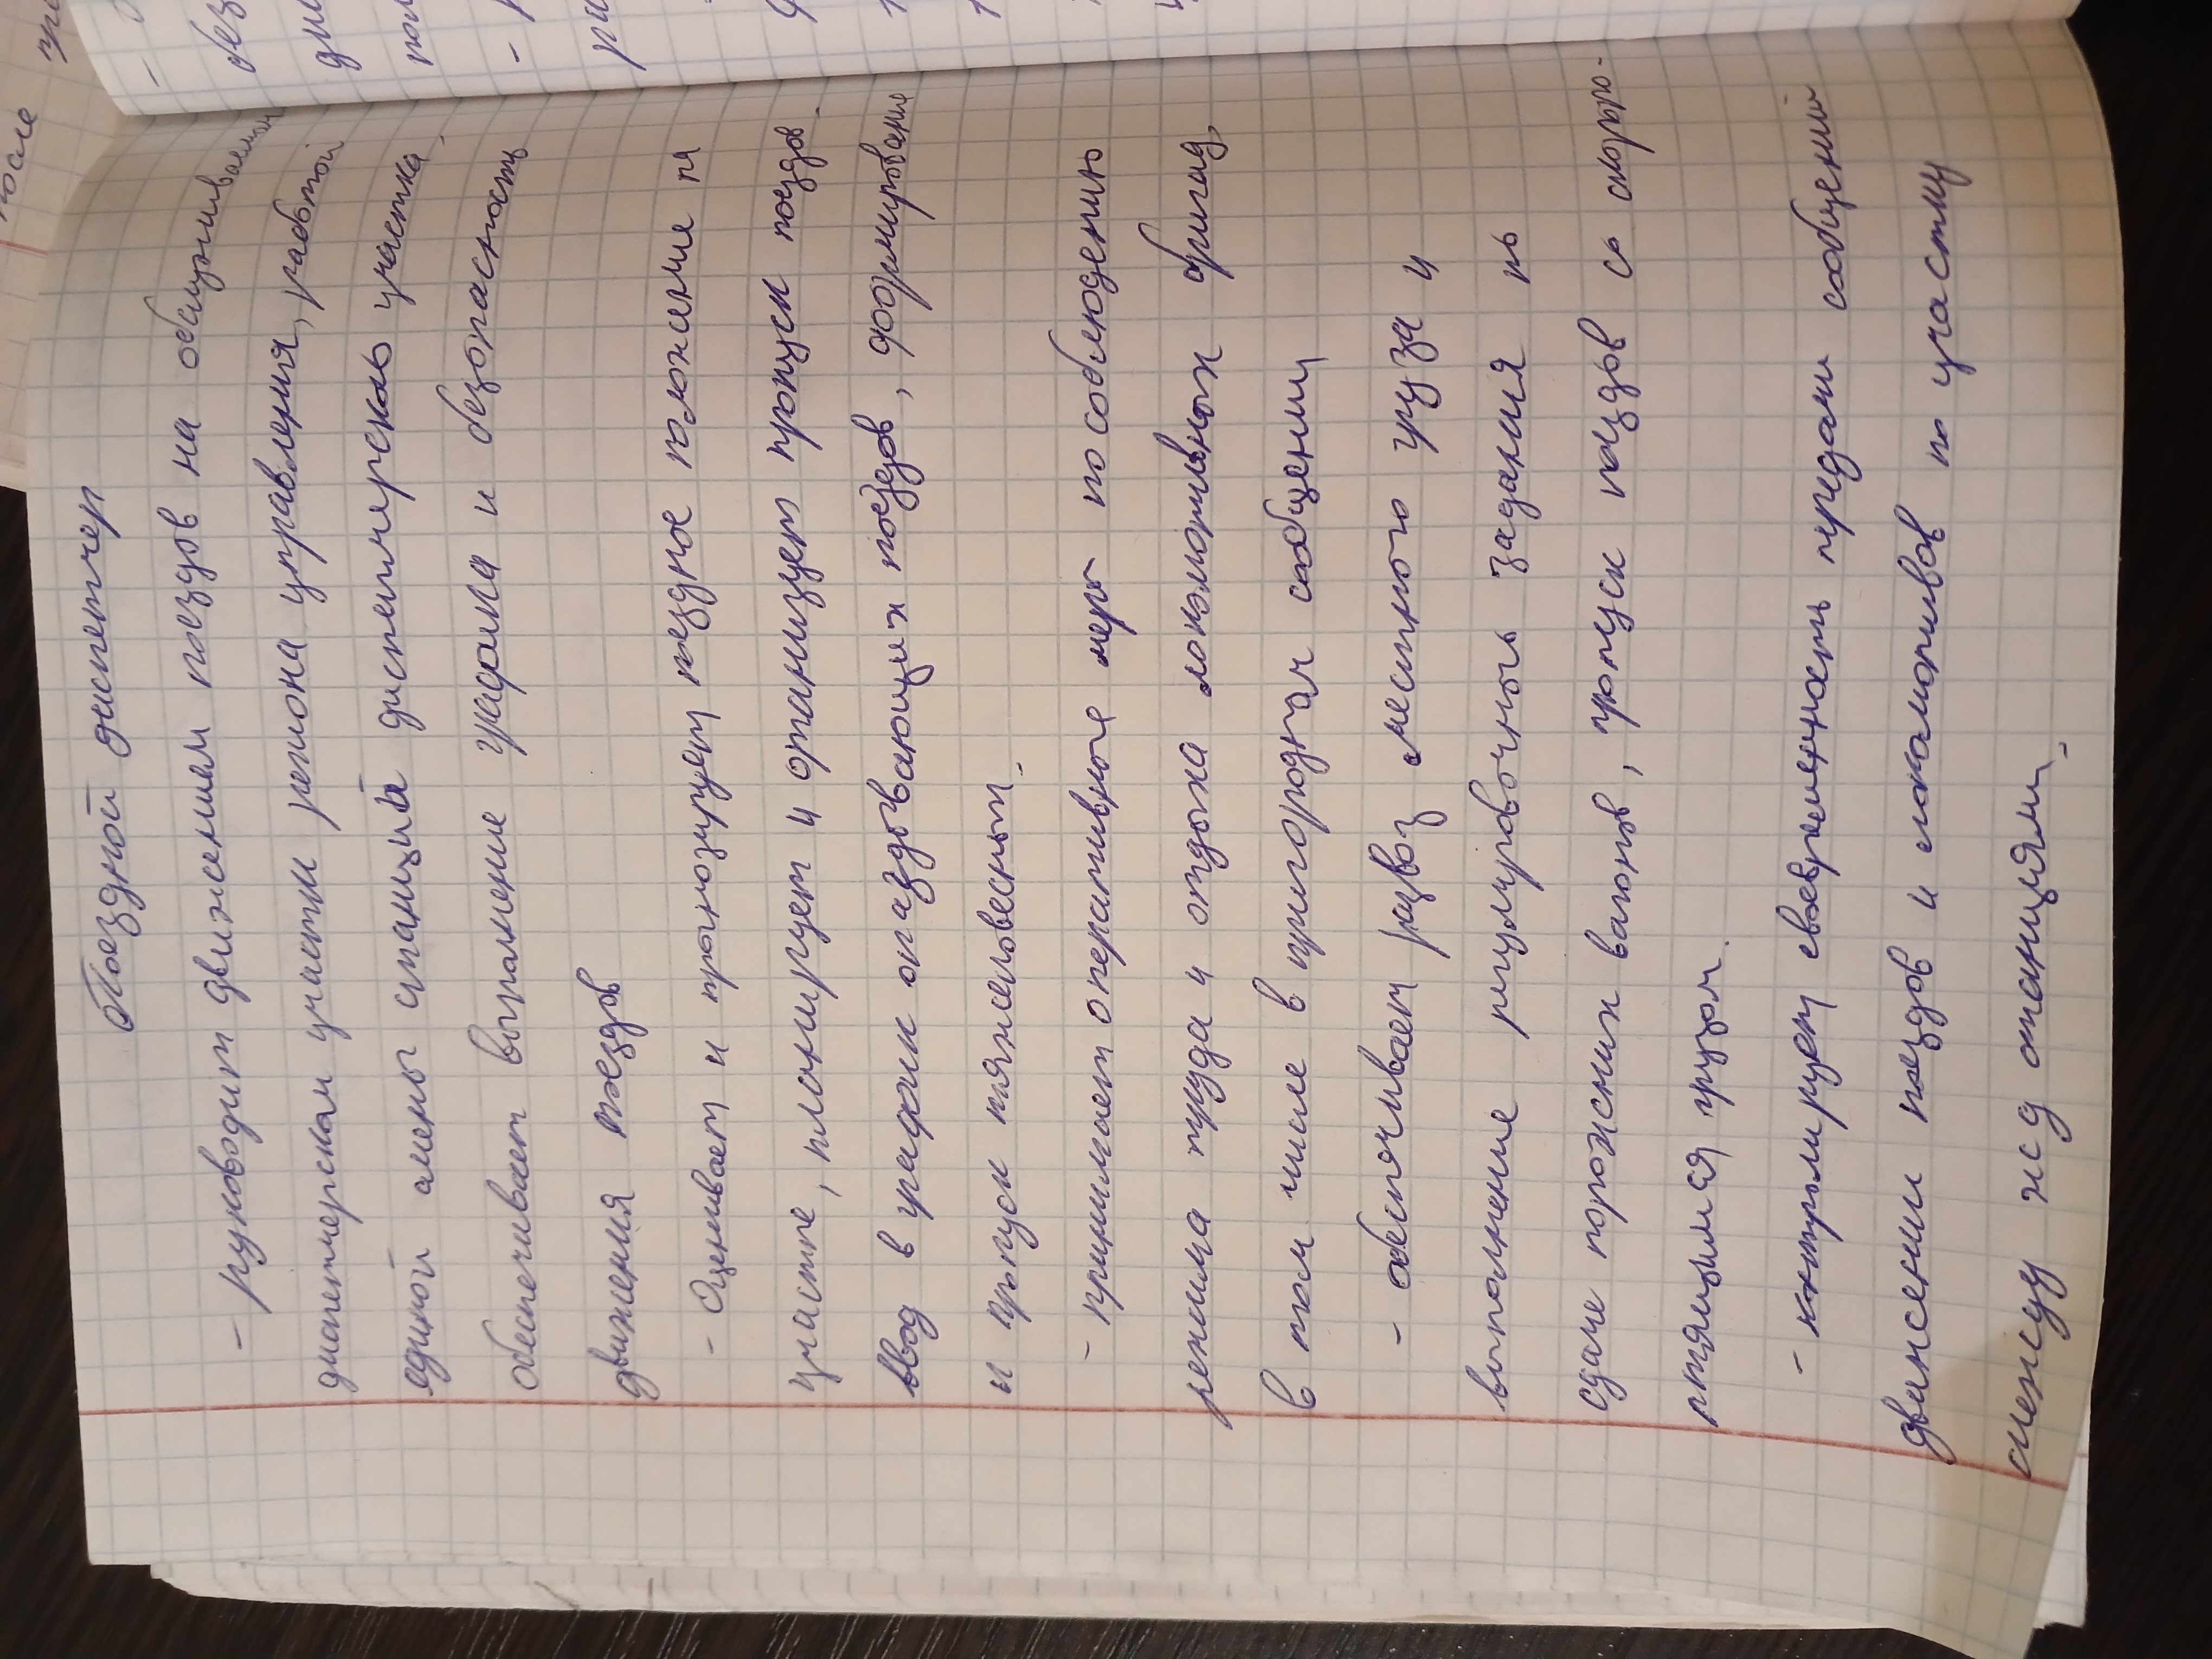 Поездной диспетчер
- руководит движением поездов на обслуживаемом
диспетчерском участки региона управления, работой
единой смены станций диспетчерского участка.
обеспечивает выполнение графика и безопасность
движения поездов
- Оценивает и прогнозирует поездное положение на
участке, планирует и организует пропуск поездов.
ввод в график опаздывающих поездов, формирование
и пропуск тяжеловесных.
- принимает оперативные меры по соблюдению
режима труда и отдыха локомотивных бригад,
в том числе в пригородном сообщении
- обеспечивает развоз местного груза и
выполнение регулировочного задания по
сдаче порожних вагонов, пропуск поездов со скоро-
ртящимся грузом.
- контролирует своевременность передачи сообщений
движении поездов и локомотивов по участку
между жд станциями.